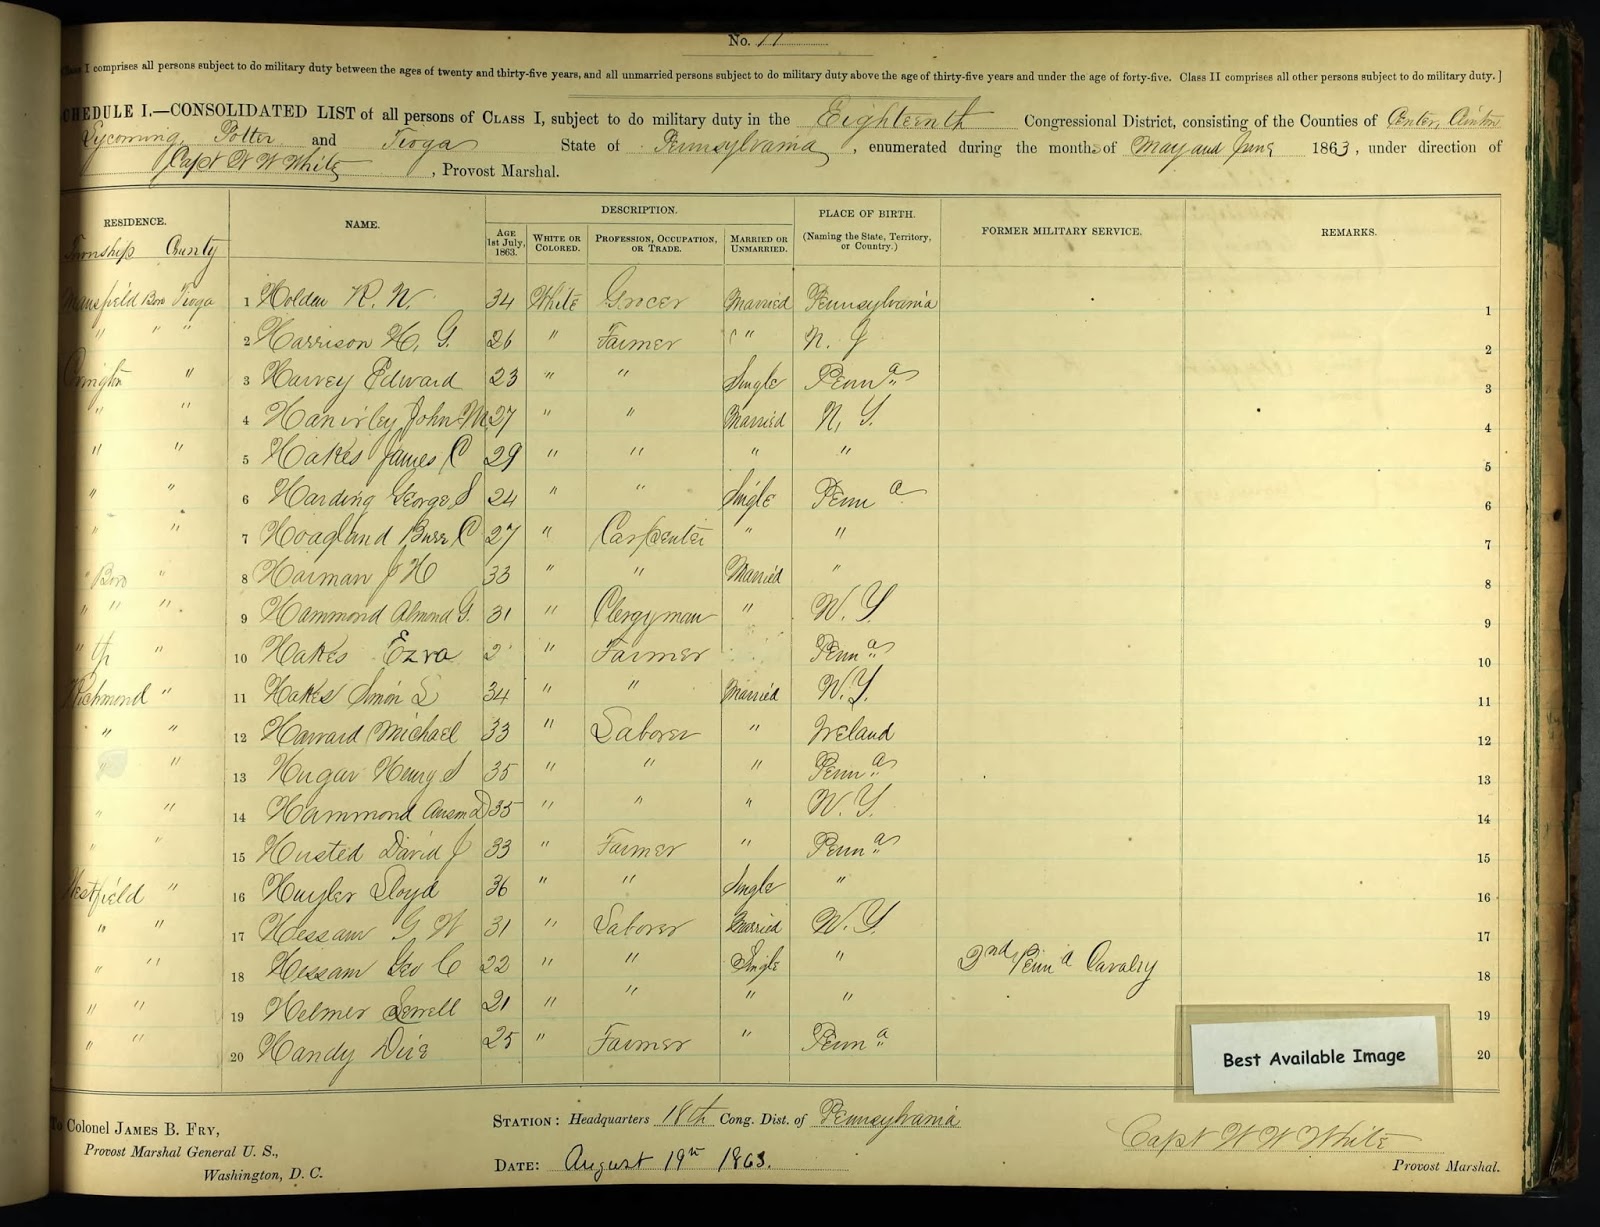 No. 11
Class I comprises all persons subject to do military duty between the ages of twenty and thirty-five years, and all unmarried persons subject to do military duty above the age of thirty-five years and under the age of forty-five. Class II comprises all other persons subject to do military duty.]
SCHEDULE I.—CONSOLIDATED LIST of all persons of CLASS I, subject to do military duty in the Eighteenth Congressional District, consisting of the Counties of Center, Clinton
Lycoming, Potter and Tioga State of Pennsylvania, enumerated during the months of May and June 1863, under direction of
Capt W W White, Provost Marshal.
RESIDENCE. NAME. DESCRIPTION. PLACE OF BIRTH. FORMER MILITARY SERVICE. REMARKS.
Township County AGE 1st July, 1863. WHITE OR COLORED. PROFESSION, OCCUPATION, OR TRADE. MARRIED OR UNMARRIED. (Naming the State, Territory, or Country.)
Mansfield Boro Tioga 1 Holden R. N. 34 White Grocer Married Pennsylvania 1
" " " 2 Harrison H. G. 26 " Farmer " " N. J 2
Covington " 3 Harvey Edward 23 " " Single Penna " 3
" " 4 John M. 27 " " Married N. Y. 4
" " 5 Hakes James C 29 " " " " 5
" " 6 Harding George S 24 " " Single Penna 6
" " 7 Hoagland Burr C 27 " Carpenter " " 7
" Boro " 8 Harman J H 33 " " Married " 8
" " " 9 Hammond Almond G. 31 " Clergyman " N. Y. 9
" Tp " 10 Hakes Ezra 2 " Farmer Penna " 10
Richmond " 11 Hakes Simon L 34 " " Married N. Y. 11
" " 12 Harvard Michael 33 " Laborer " Ireland 12
" " 13 Hugar Henry S 35 " " " Penna " 13
" " 14 Hammond Anson D 35 " " " N. Y. 14
" " 15 Husted David J 33 " Farmer " Penna " 15
Westfield " 16 Huyler Lloyd 36 " " Single " 16
" " 17 Hessam G W 31 " Laborer Married N. Y. 17
" " 18 Hessam Geo C 22 " " Single " 2nd Penna Cavalry 18
" " 19 Helmer Lewell 21 " " " " 19
" " 20 Handy 25 " Farmer " Penna " 20
Best Available Image
To Colonel JAMES B. FRY,
Provost Marshal General U. S.,
Washington, D. C.
STATION: Headquarters 18th Cong. Dist. of Pennsylvania
DATE: August 19th 1863.
Capt W W White
Provost Marshal.